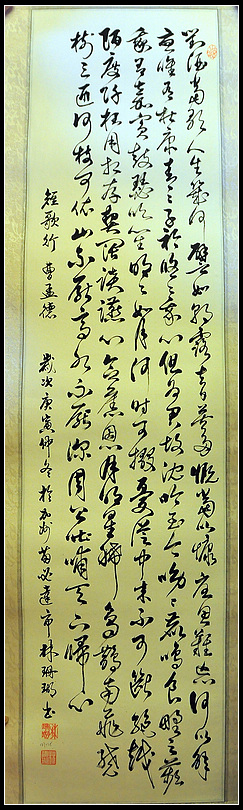 對酒當歌人生幾何譬如朝露去日苦多慨當以慷憂思難忘何以解
憂唯有杜康青々子衿悠々我心但為君故沈吟至今呦々鹿鳴食野之苹
我有嘉賓鼓瑟吹笙明々如月何時可掇憂從中來不可斷絕越
陌度阡枉用相存契闊談讌心念舊恩月明星稀烏鵲南飛繞
樹三匝何枝可依山不厭高水不厭深周公吐哺天下歸心
短歌行 曹孟德 歲次庚寅仲冬於加州苗必達市林珊 書